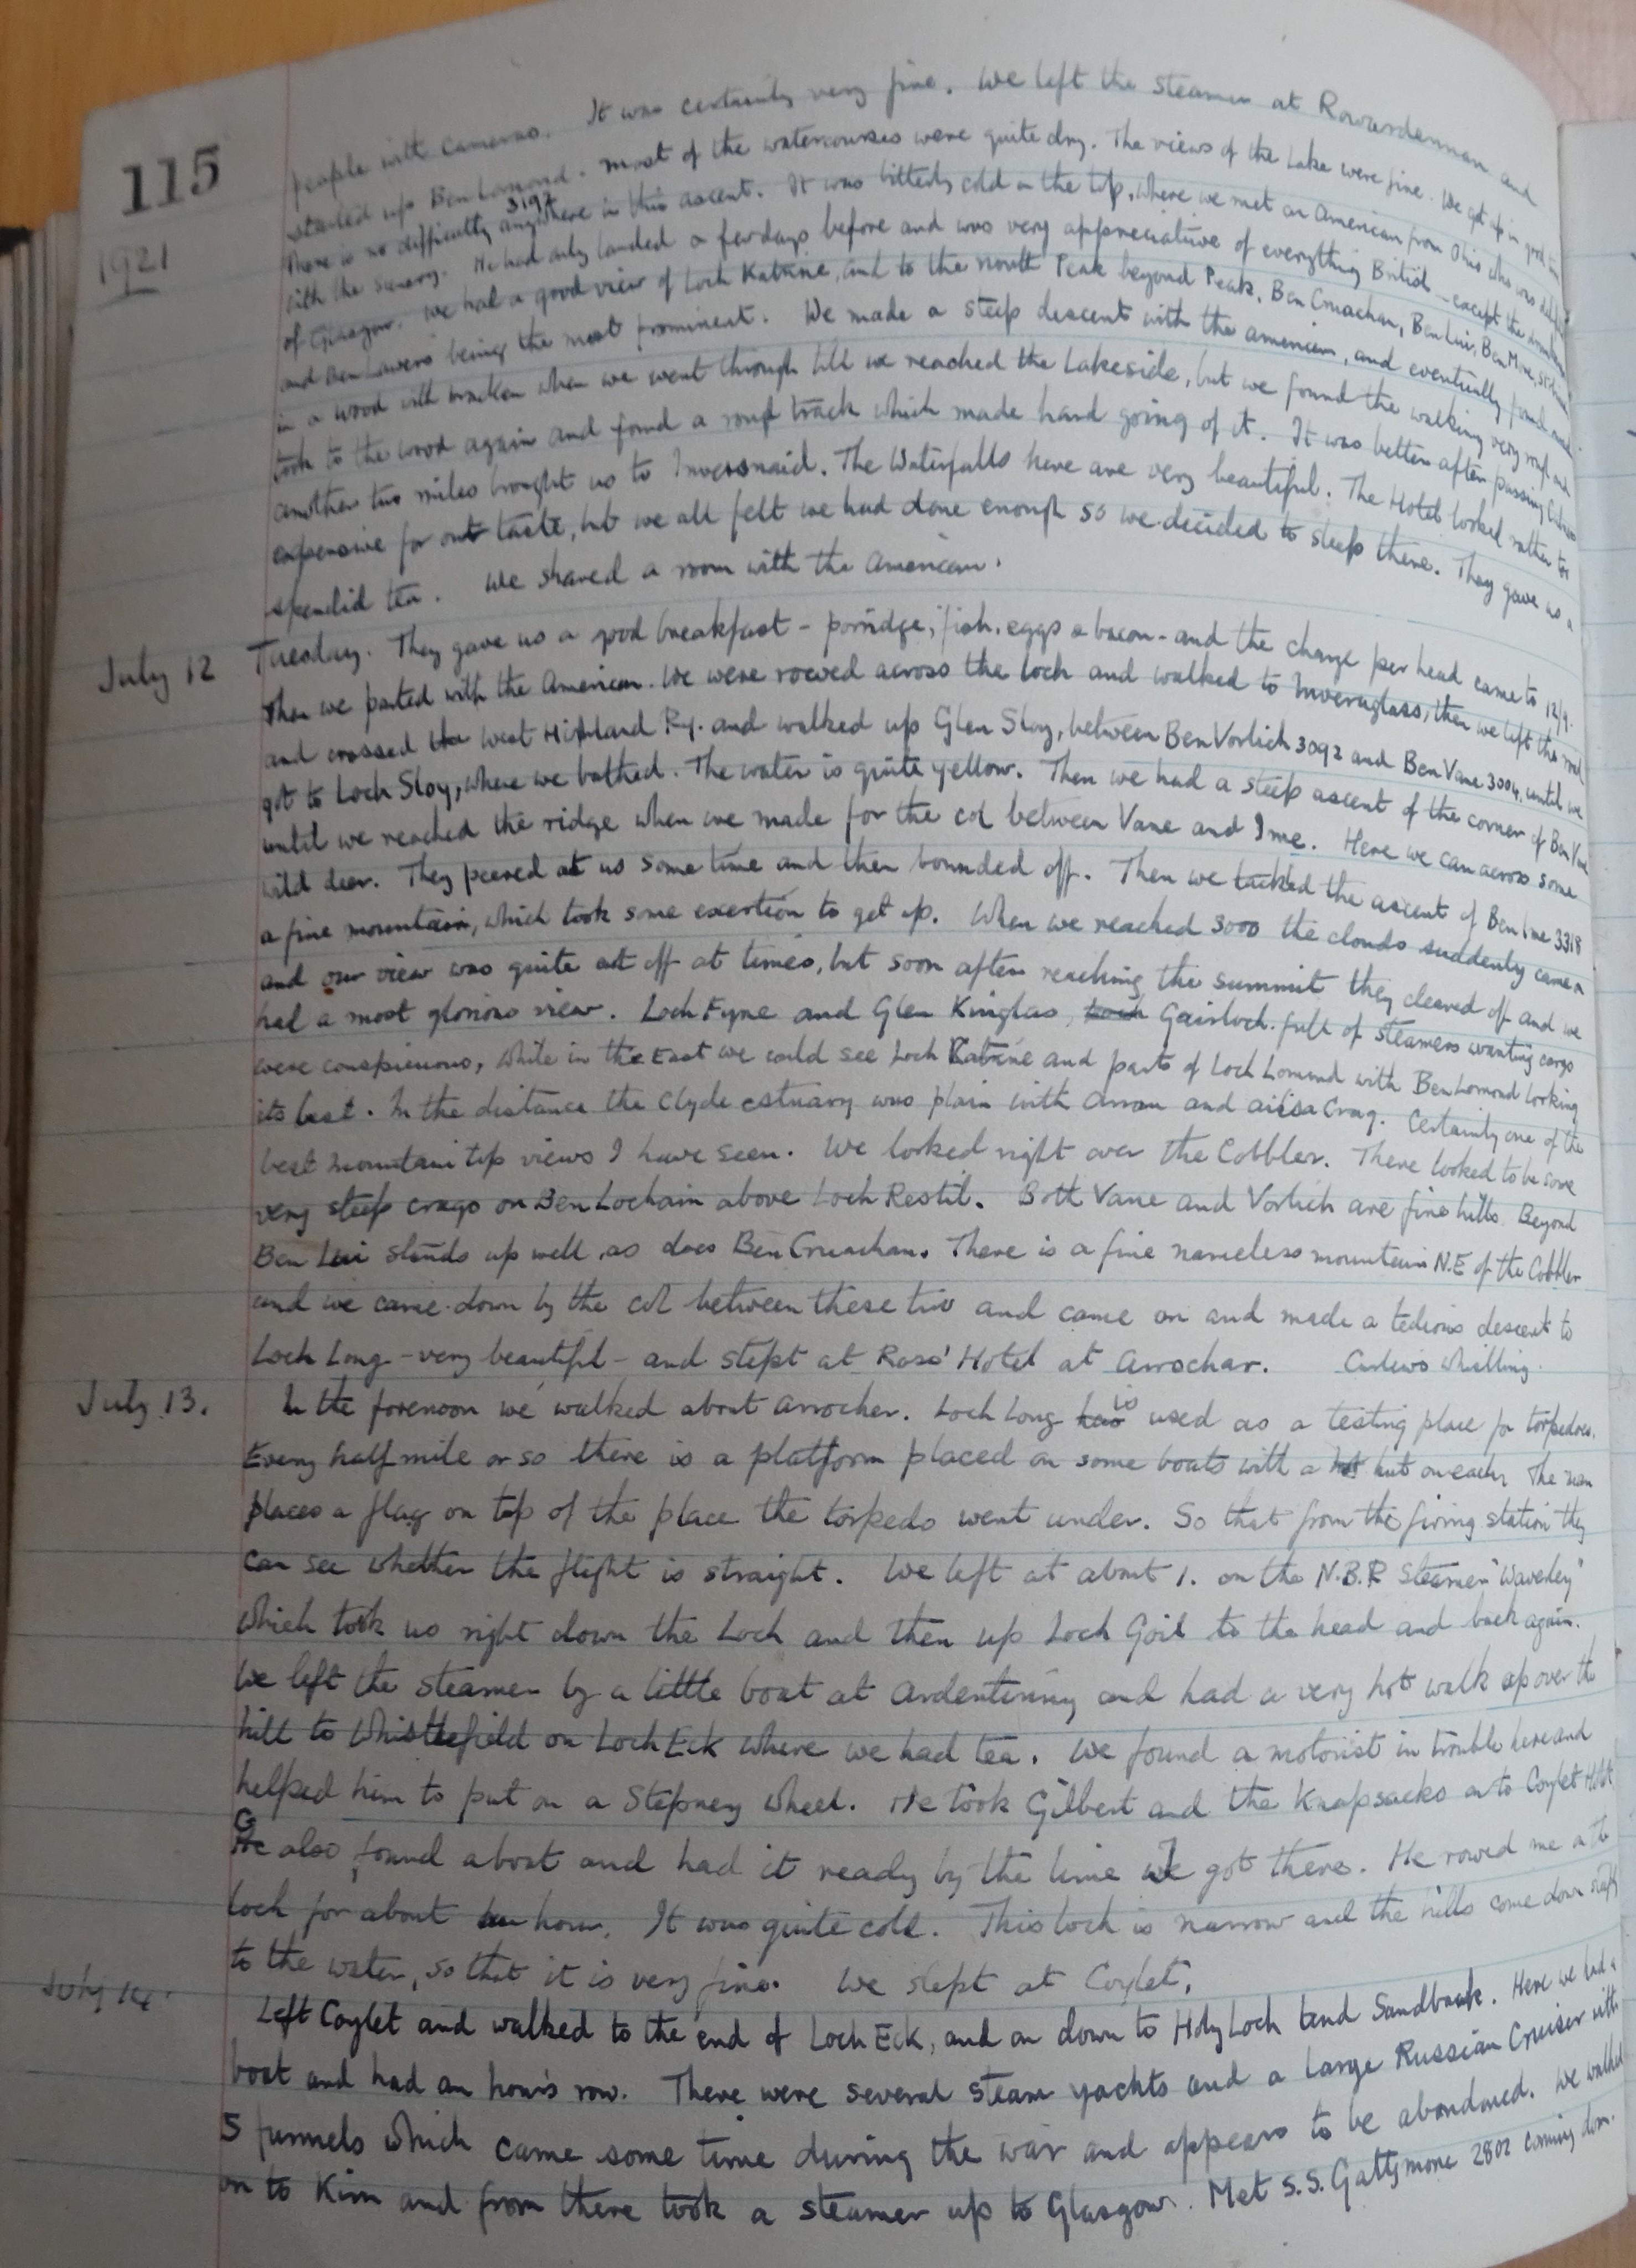 115
1921
people with cameras. It was certainly very fine. We left the steamer at Rowardennan and
started up Ben Lomond. most of the watercourses were quite dry. The views of the Lake were fine. We got up in good
3192
There is no difficulty anywhere in this ascent. It was bitterly cold on the top, where we met an American from Ohio who was
with the scenery. He had only landed a few days before and was very appreciative of everything British - except the
of Glasgow. We had a good view of Loch Katrine, and to the north Peak beyond Peak, Ben Cruachan, Ben Lui, Ben More,
and Ben Lawers being the most prominent. We made a steep descent with the american, and eventually found
in a wood with bracken when we went through till we reached the Lakeside, but we found the walking very rough and
took to the wood again and found a rough track which made hard going of it. It was better after passing
another two miles brought us to Inversnaid. The Waterfalls here are very beautiful. The Hotel looked rather too
expensive for our taste, but we all felt we had done enough so we decided to sleep there. They gave us a
splendid tea. We shared a room with the American.
July 12 Tuesday. They gave us a good breakfast - porridge, fish, eggs & bacon - and the charge per head came to 12/9.
Then we parted with the American. We were rowed across the loch and walked to Inveruglass, then we left the road
and crossed the West Highland Ry. and walked up Glen Sloy, between Ben Vorlich 3092 and Ben Vane 3004, until we
got to Loch Sloy, where we bathed. The water is quite yellow. Then we had a steep ascent of the corner of Ben Vane
until we reached the ridge when we made for the col between Vane and Ime. Here we can across some
wild deer. They peered at us some time and then bounded off. Then we tackled the ascent of Ben Ime 3318
a fine mountain, which took some exertion to get up. When we reached 3000 the clouds suddenly came on
and our view was quite cut off at times, but soon after reaching the summit they cleared off and we
had a most glorious view. Loch Fyne and Glen Kinglas, Loch Gairloch full of steamers wanting cargo
were conspicuous, while in the East we could see Loch Katrine and parts of Loch Lomond with Ben Lomond looking
its best. In the distance the Clyde estuary was plain with Arran and ailsa Crag. Certainly one of the
best mountain top views I have seen. We looked right over the Cobbler. There looked to be some
very steep crags on Ben Lochain above Loch Restil. Both Vane and Vorlich are fine hills. Beyond
Ben Lui stands up well, as does Ben Cruachan. There is a fine nameless mountain N.E of the Cobbler
and we came down by the col between these two and came on and made a tedious descent to
Loch Long - very beautiful - and slept at Ross' Hotel at Arrochar. Curlews whistling.
July 13. In the forenoon we walked about Arrochar. Loch Long has is used as a testing place for torpedoes.
Every half mile or so there is a platform placed on some boats with a hut on each. The man
places a flag on top of the place the torpedo went under. So that from the firing station they
can see whether the flight is straight. We left at about 1. on the N.B.R Steamer "Waverley"
which took us right down the Loch and then up Loch Goil to the head and back again.
We left the steamer by a little boat at Ardentinny and had a very hot walk up over the
hill to Whistlefield on Loch Eck where we had tea. We found a motorist in trouble here and
helped him to put on a Stepney wheel. He took Gilbert and the Knapsacks on to Coylet Hotel
G also found a boat and had it ready by the time I got there. He rowed me on the
loch for about an hour. It was quite cold. This loch is narrow and the hills come down steeply
to the water, so that it is very fine. We slept at Coylet.
July 14. Left Coylet and walked to the end of Loch Eck, and on down to Holy Loch and Sandbank. Here we had a
boat and had an hour's row. There were several steam yachts and a large Russian Cruiser with
5 funnels which came some time during the war and appears to be abandoned. We walked
on to Kirn and from there took a steamer up to Glasgow. Met S.S. Gattymore 2802 coming down.